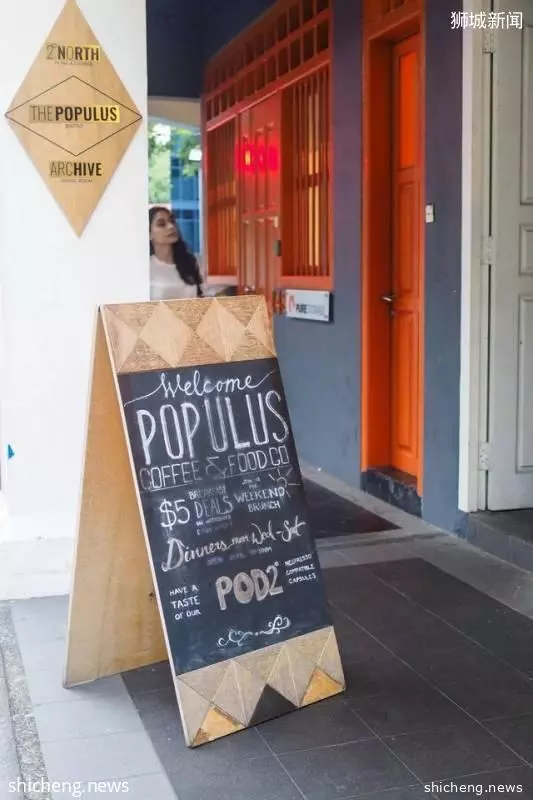 狮城新闻
2°NORTH
THE POPULUS
BISTRO
ARCHIVE
PURE
Welcome
POPULUS
COFFEE & FOOD CO
$5 BREAKFAST DEALS
JOIN US FOR WEEKEND BRUNCH
Dinners from Wed-Sat
HAVE A TASTE OF OUR
POD2°
NESPRESSO COMPATIBLE CAPSULES
shicheng.news
shicheng.news